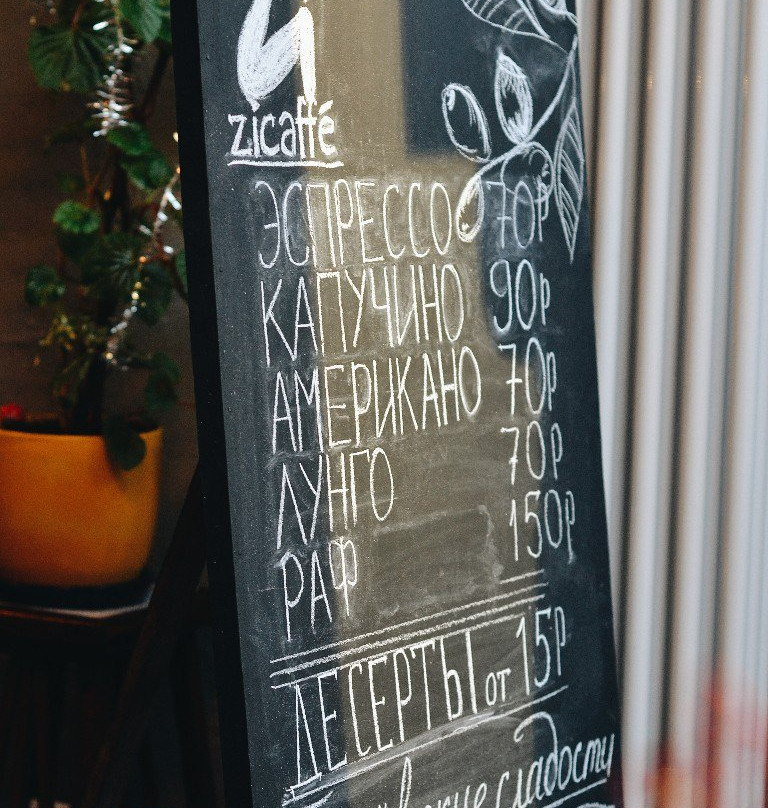 zicaffé
ЭСПРЕССО 70р
КАПУЧИНО 90р
АМЕРИКАНО 70р
ЛУНГО 70р
РАФ 150р
ДЕСЕРТЫ от 15р
сладости